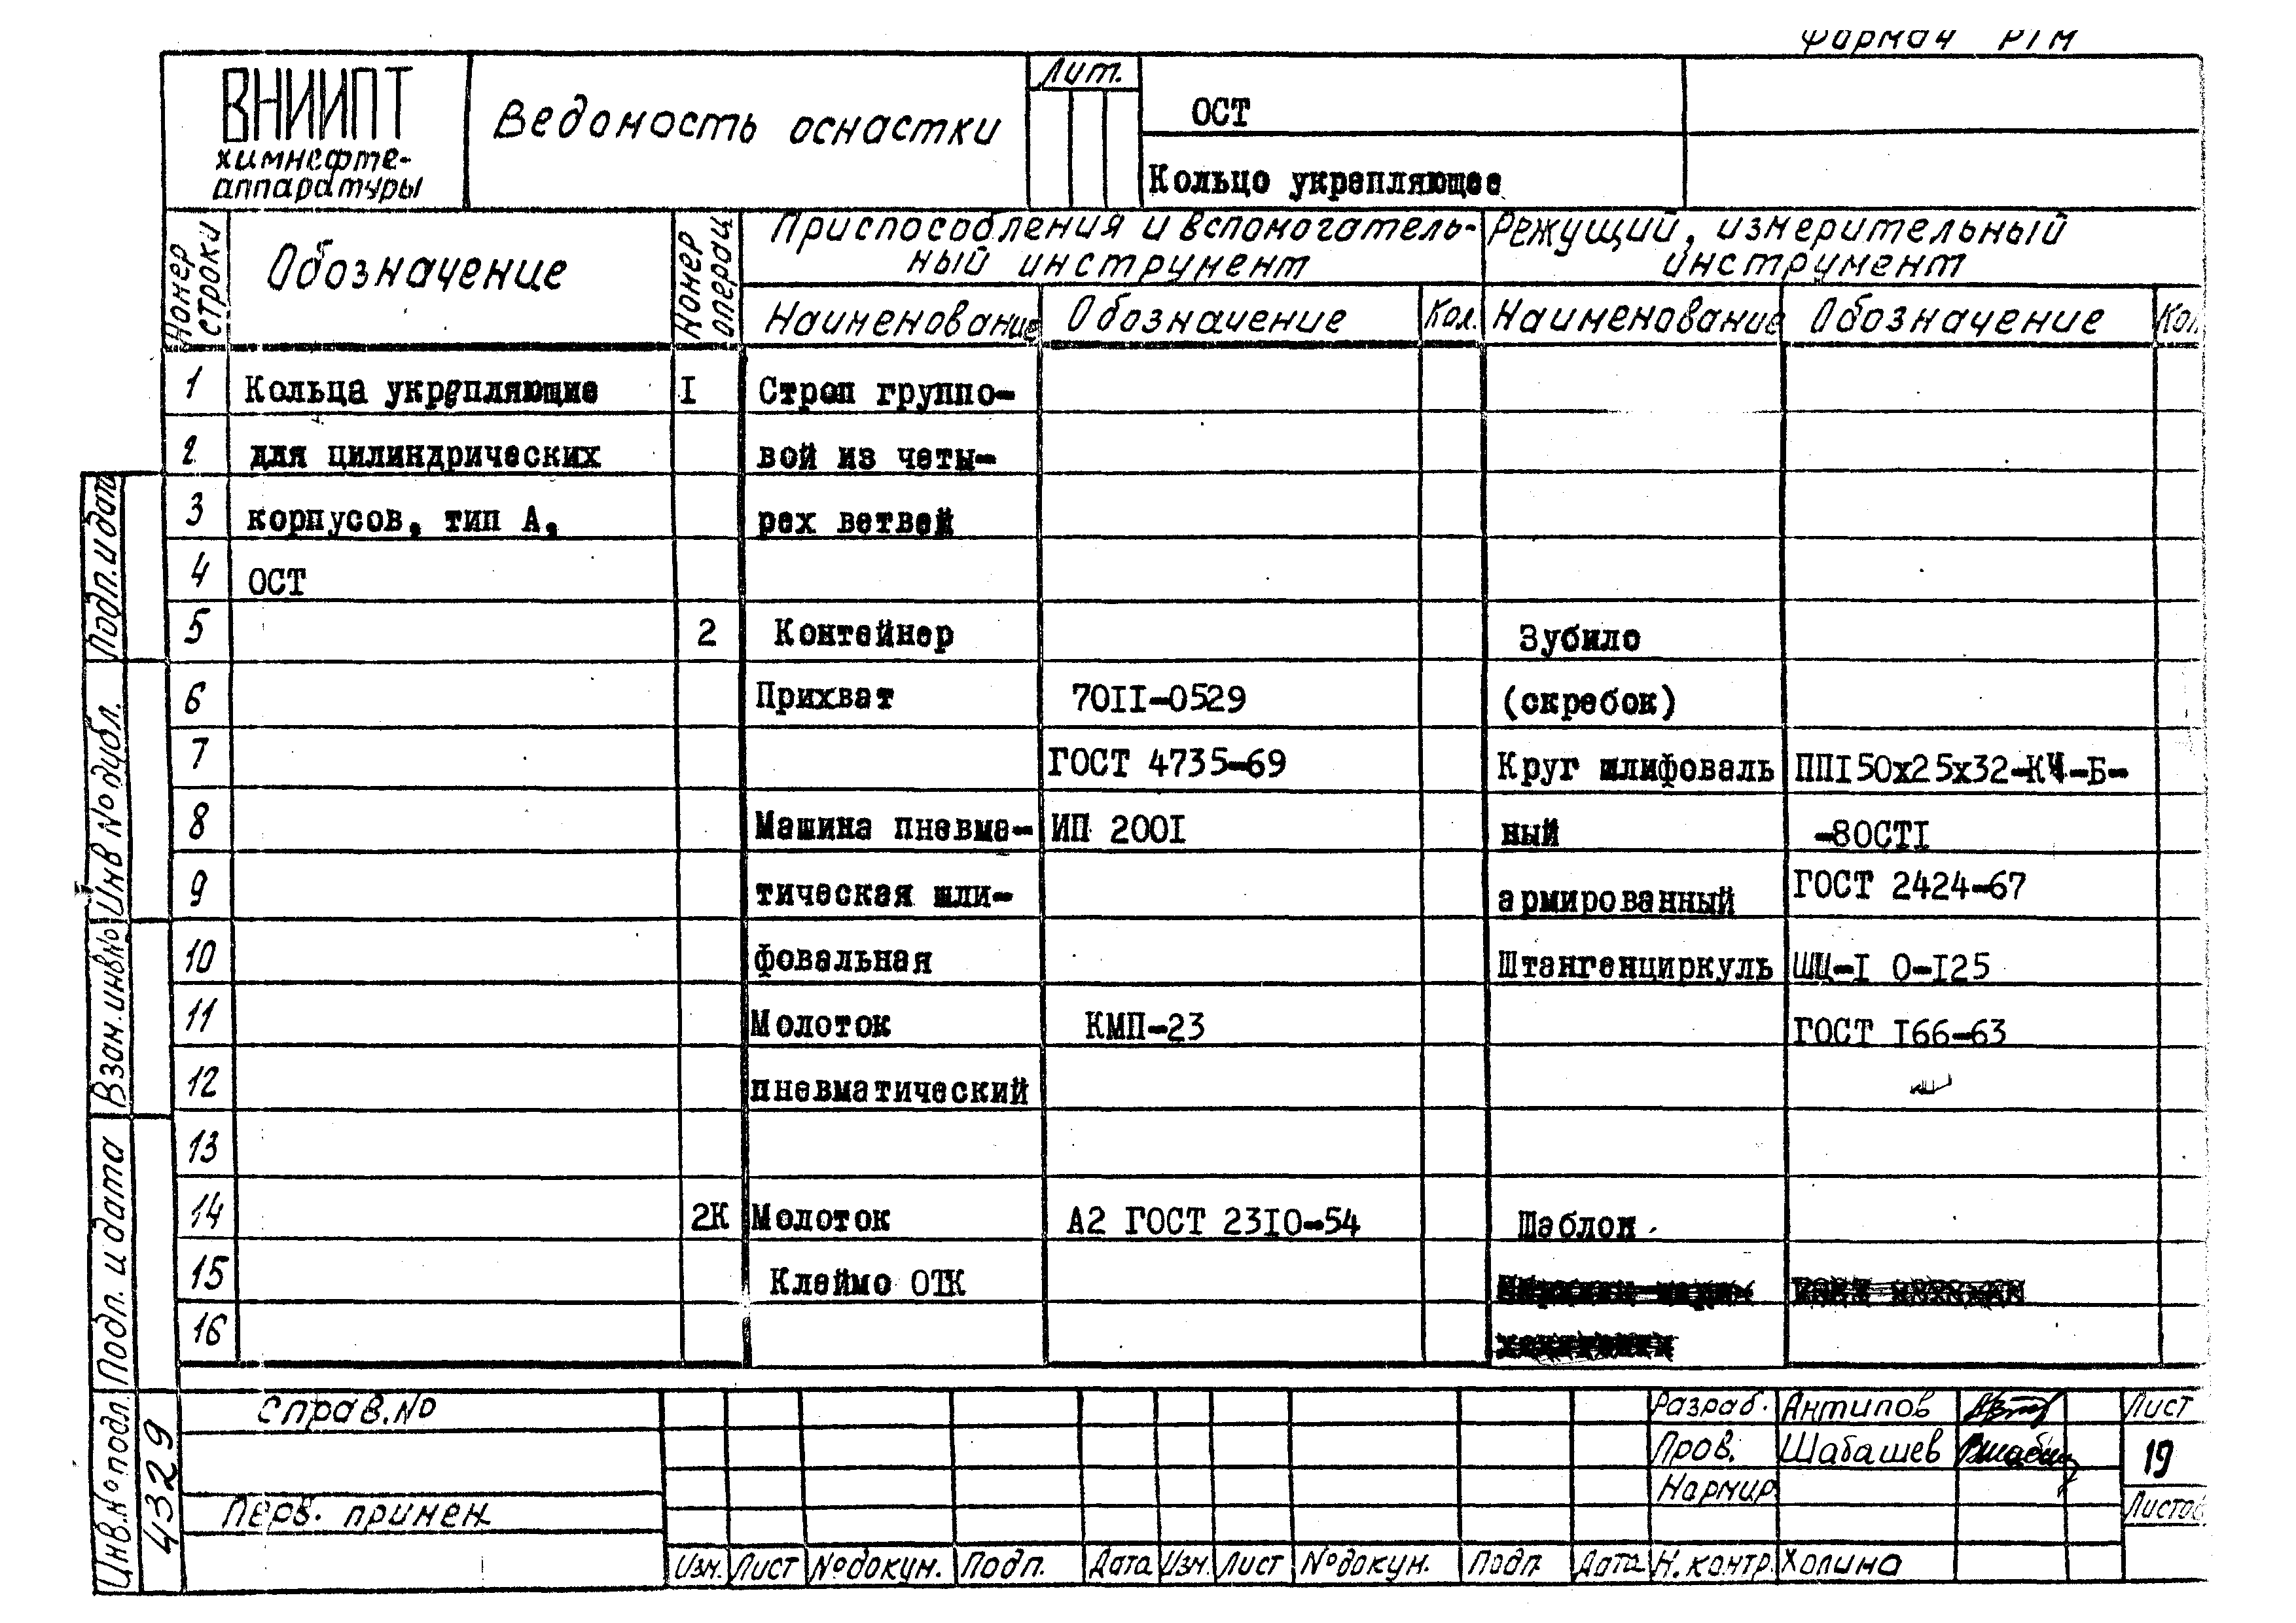 Формат РТМ
ВНИИПТ
химнефте-
аппаратуры
Ведомость оснастки
Лит.
ОСТ
Кольцо укрепляющее
Номер строки
Обозначение
Номер операц
Приспособления и вспомогатель-
ный инструмент
Режущий, измерительный
инструмент
Наименование Обозначение Кол. Наименование Обозначение Кол
1 Кольца укрепляющие I Строп группо-
2 для цилиндрических вой из четы-
3 корпусов, тип А, рех ветвей
4 ОСТ
5 2 Контейнер Зубило
6 Прихват 70II-0529 (скребок)
7 ГОСТ 4735-69 Круг шлифоваль ППI50х25х32-КЧ-Б-
8 Машина пневма- ИП 200I ный -80СТI
9 тическая шли- армированный ГОСТ 2424-67
10 фовальная Штангенциркуль ШЦ-I 0-I25
11 Молоток КМП-23 ГОСТ I66-63
12 пневматический
13
14 2К Молоток А2 ГОСТ 23I0-54 Шаблон
15 Клеймо ОТК
16
Подп. и дата
Инв № дубл.
Взам. инв №
Подп. и дата
Инв. № подл.
4329
Справ. №
Перв. примен.
Разраб. Антипов
Пров. Шабашев
Нормир
Изм. Лист № докум. Подп. Дата Изм. Лист № докум. Подп. Дата Н. контр. Холина
Лист
19
Листов